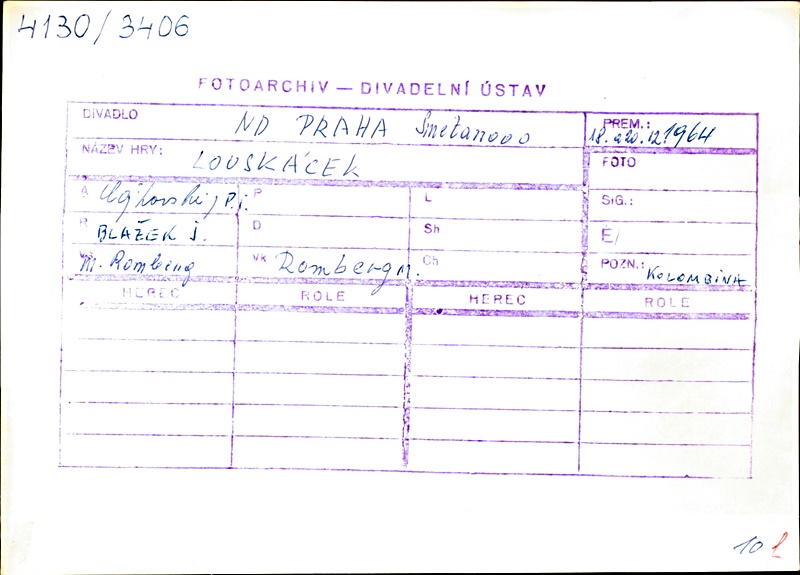 4130/3406
FOTOARCHIV — DIVADELNÍ ÚSTAV
DIVADLO ND PRAHA Smetanovo PREM.: 18. a 20. 12. 1964
NÁZEV HRY: LOUSKÁČEK FOTO
A P.I. P L SIG.:
R BLAŽEK J. D Sh É/
M. Romberg Vk Romberg M. Ch POZN.: KOLOMBÍNA
HEREC ROLE HEREC ROLE
10